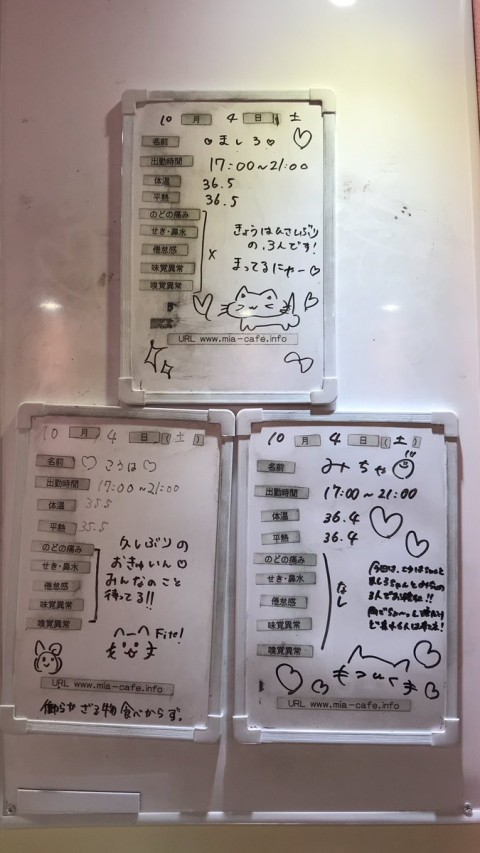 10 月 4 日 土
名前 ♡ ましろ ♡
出勤時間 17:00~21:00
体温 36.5
平熱 36.5
のどの痛み
せき・鼻水
倦怠感
味覚異常
嗅覚異常
×
きょうはひさしぶり
の、3人です!
まってるにゃー♡
URL www.mia-cafe.info
10 月 4 日 (土)
名前 ♡ こうは ♡
出勤時間 17:00~21:00
体温 35.5
平熱 35.5
のどの痛み
せき・鼻水
倦怠感
味覚異常
嗅覚異常
久しぶりの
おきゅいん♡
みんなのこと
待ってる!!
Fito!
URL www.mia-cafe.info
働らかざる物食べからず。
10 月 4 日 (土)
名前 みちゃ
出勤時間 17:00~21:00
体温 36.4
平熱 36.4
のどの痛み
せき・鼻水
倦怠感
味覚異常
嗅覚異常
なし
今日は、こうはちゃんと
ましろちゃんとみちゃの
3人でお給仕!!
URL www.mia-cafe.info